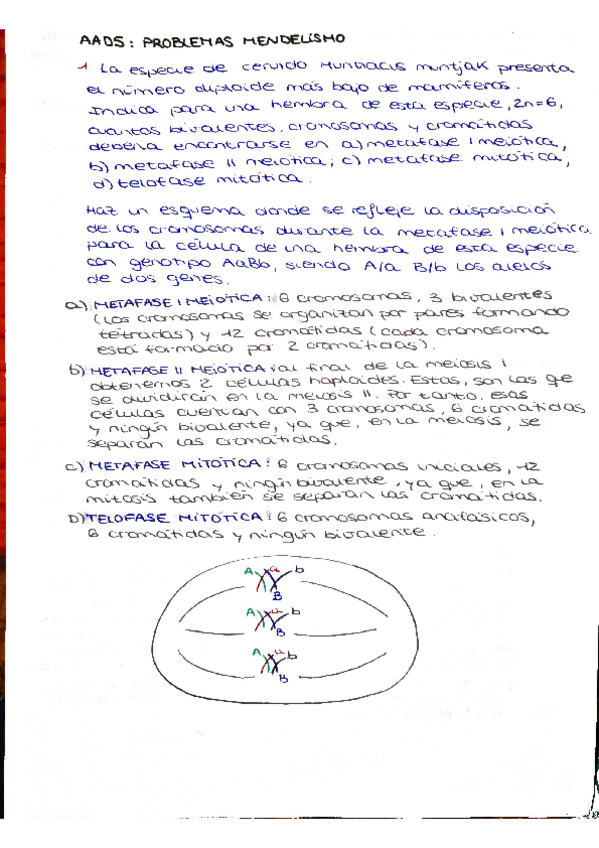 AAD5: PROBLEMAS MENDELISMO
1 La especie de cérvido Muntiacus muntjak presenta
el número diploide más bajo de mamíferos.
Indica para una hembra de esta especie, 2n=6,
cuántos bivalentes, cromosomas y cromátidas
deberia encontrarse en a) metafase I meiótica,
b) metafase II meiótica; c) metafase mitótica;
d) telofase mitótica.
Haz un esquema donde se refleje la disposición
de los cromosomas durante la metafase I meiótica
para la célula de una hembra de esta especie
con genotipo AaBb, siendo A/a B/b los alelos
de dos genes.
a) METAFASE I MEIÓTICA: 6 cromosomas, 3 bivalentes
(los cromosomas se organizan por pares formando
tétradas) y 12 cromátidas (cada cromosoma
está formado por 2 cromátidas).
b) METAFASE II MEIÓTICA: al final de la meiosis I
obtenemos 2 células haploides. Estas, son las que
se dividirán en la meiosis II. Por tanto, esas
células cuentan con 3 cromosomas, 6 cromátidas
y ningún bivalente, ya que, en la meiosis, se
separan las cromátidas.
c) METAFASE MITÓTICA: 6 cromosomas iniciales, 12
cromátidas y ningún bivalente, ya que, en la
mitosis también se separan las cromátidas.
D) TELOFASE MITÓTICA: 6 cromosomas anafásicos,
6 cromátidas y ningún bivalente.
A a b
B
A a b
B
A a b
B